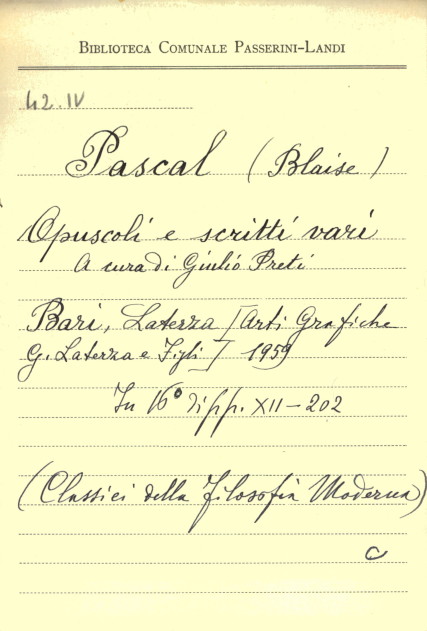 BIBLIOTECA COMUNALE PASSERINI-LANDI
42.IV
Pascal (Blaise)
Opuscoli e scritti vari
A cura di Giulio Preti
Bari, Laterza [Arti Grafiche
G. Laterza e Figli] 1959
In 16° di pp. XII-202
(Classici della filosofia Moderna)
C